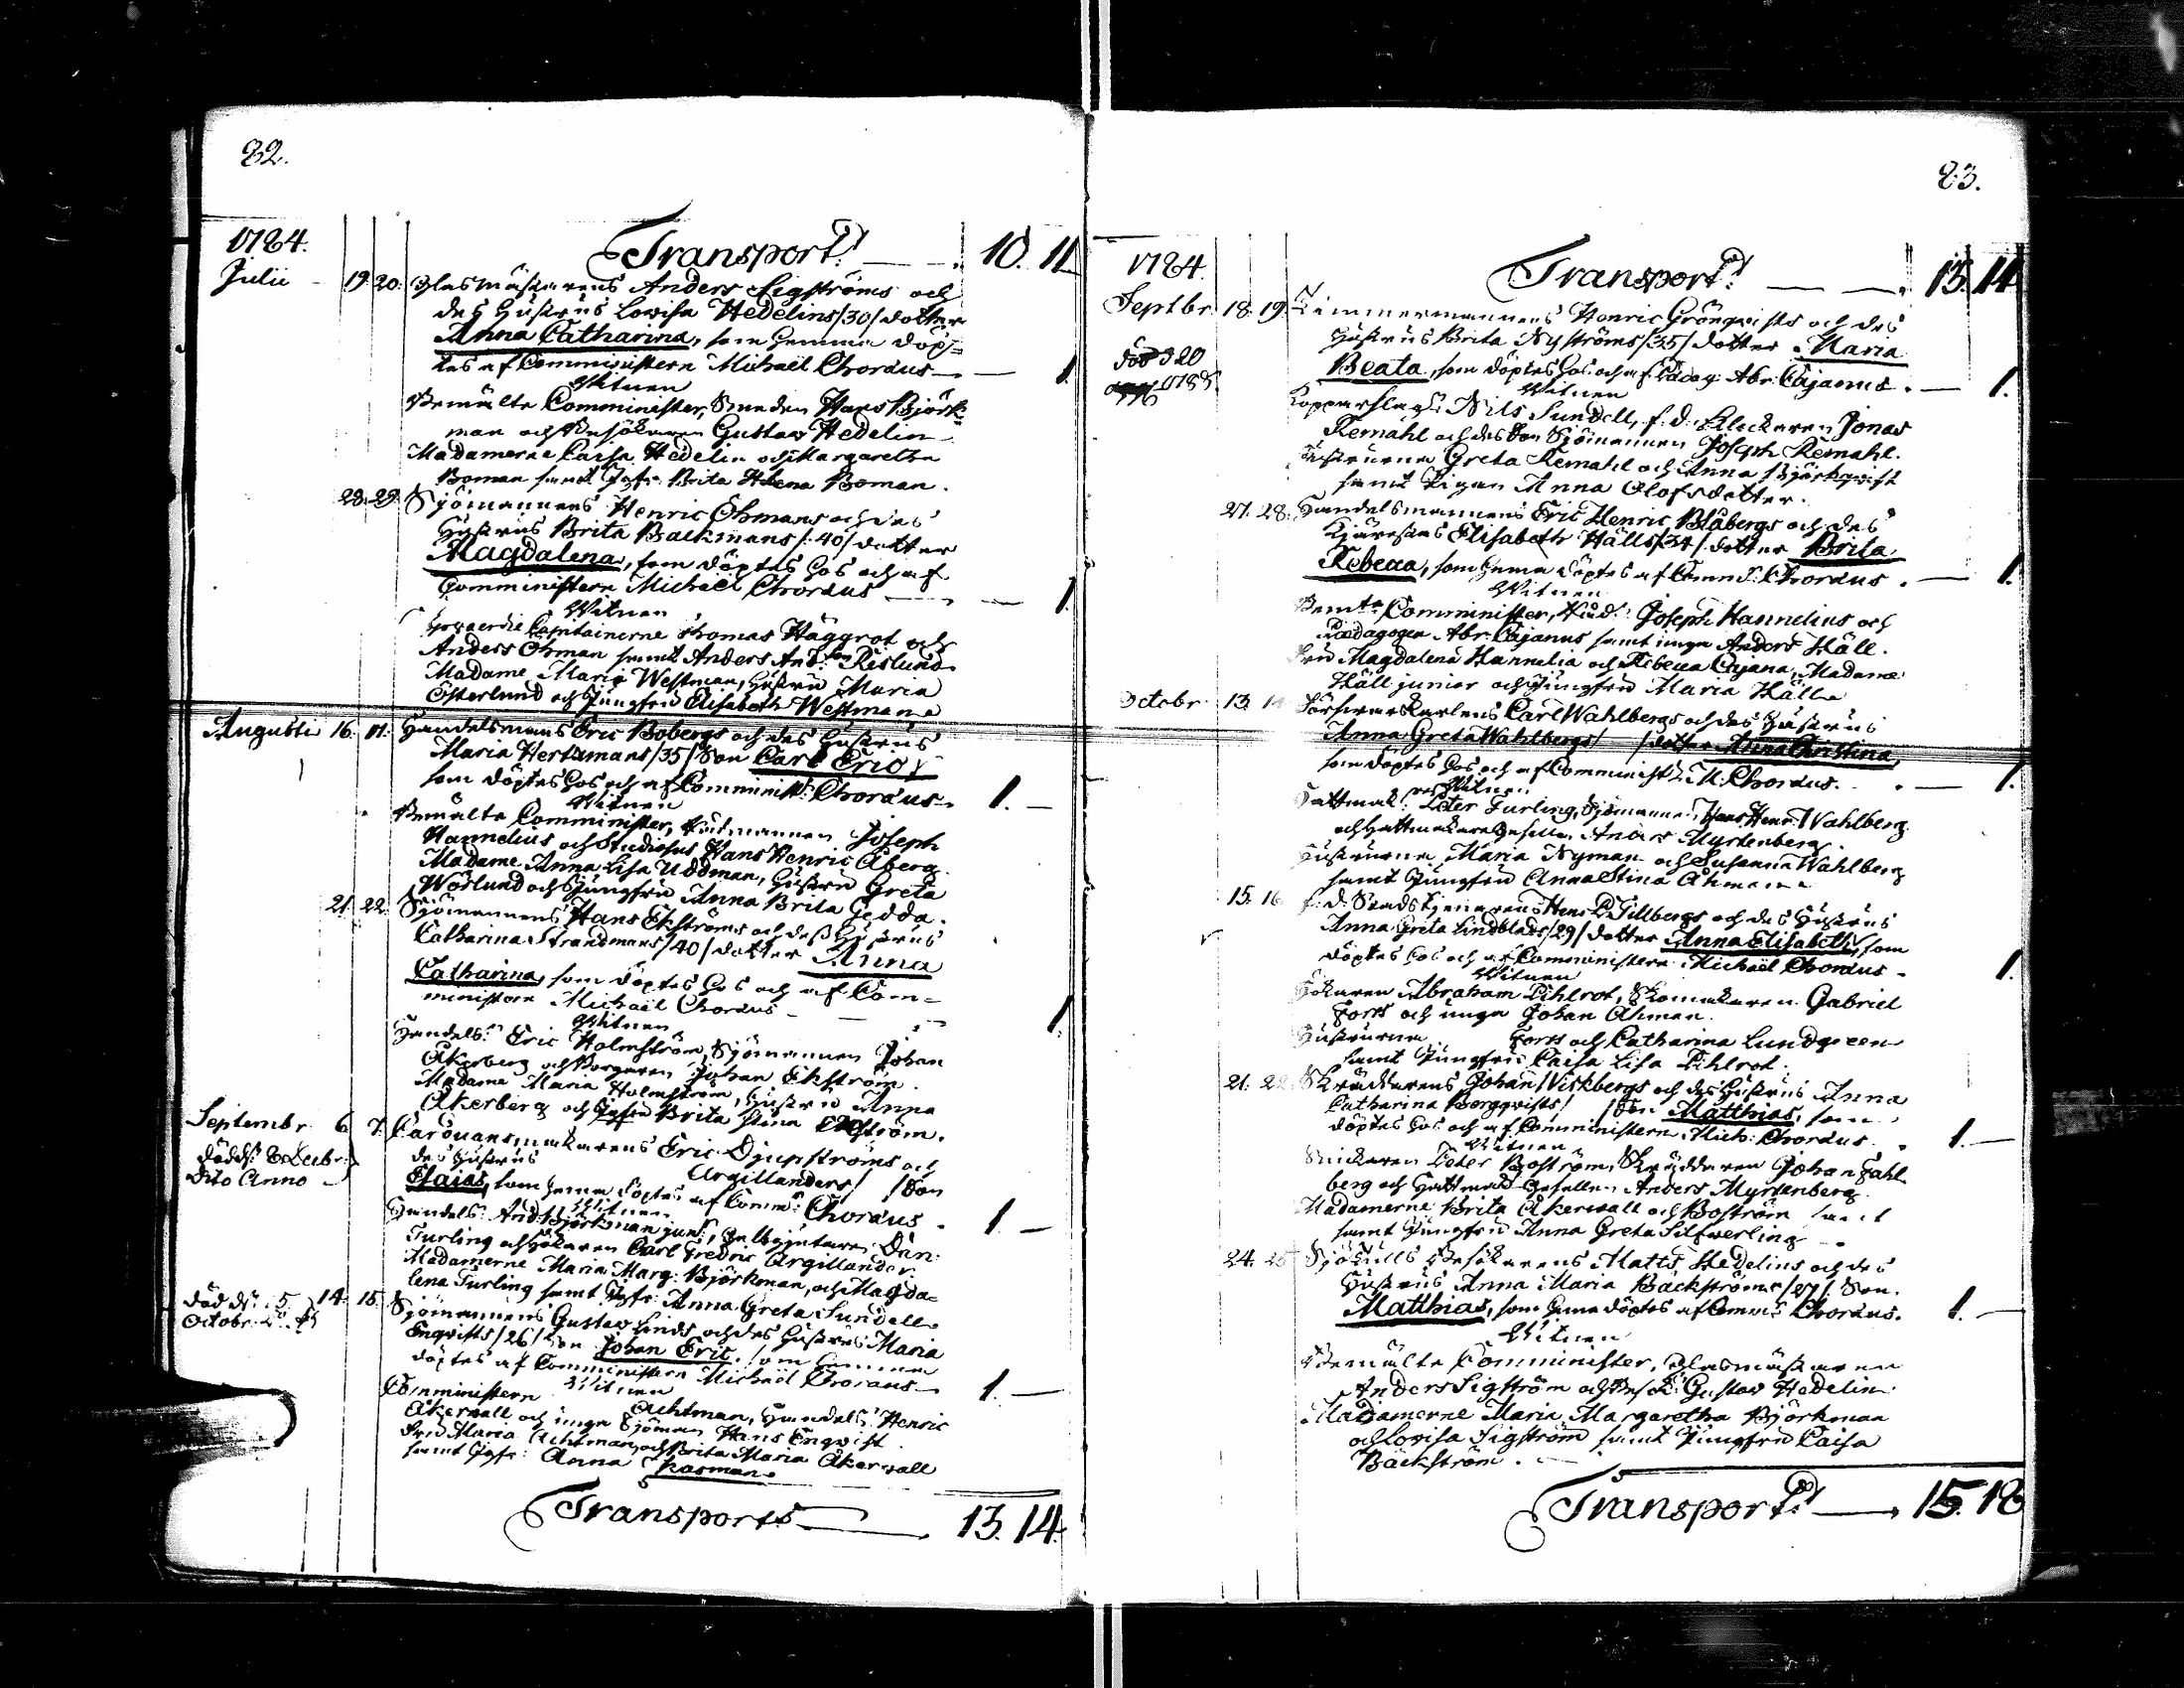 82.
1784. Transportt 10. 11
Julii 19. 20. Glasmästarens Anders Sigströms och
des Hustrus Lovisa Hedelins /30/ dotter
Anna Catharina, som hemma döp=
tes af Comministern Michaël Choræus 1.
Witnen
Bemälte Comminister, Hans Björk=
man och Besökaren Gustav Hedelin
Madamerne Caisa Hedelin och Margaretha
Boman samt Jgfr. Brita Helena Boman.
28. 29. Sjömannens Henric Öhmans och des
Hustrus Brita Backmans /:40/ dotter
Magdalena, som döptes hos och af
Comministern Michaël Choræus 1.
Witnen
Capitainerne Thomas Häggrot och
Anders Öhman samt Anders And:son Rislund
Madame Maria Westman, Hustru Maria
Österlund och Jungfru Elisabeth Westman
Augusti 16. 17. Handelsmans Eric Bobergs och des Hustrus
Maria Hertzmans /35/ Son Carl Eric
som döptes hos och af Commінist: Choræus 1. —
Witnen
Bemälte Comminister, Rådmannen Joseph
Hannelius och Studiosus Hans Henric Åberg
Madame Anna Lisa Uddman, Hustru Greta
Wörlund och Jungfru Anna Brita Gedda.
21. 22. Sjömannens Hans Ekströms och des Hustrus
Catharina Strandmans /40/ dotter Anna
Catharina, som döptes hos och af Com=
ministern Michaël Choræus 1.
Witnen
Handels: Eric Holmström, Sjömannen Johan
Åkerberg och Borgaren Johan Ekström.
Madame Maria Holmström, Hustru Anna
Åkerberg och Jgfru Brita Stina Ekström.
Septembr 6. 7. Carduansmakarens Eric Djupströms och
dödde Decbr. des Hustrus Argillanders / / Son
dito Anno Esaias, som hema döptes af Comm: Choræus 1. —
Witnen
Handels: And: Björkman jun:, Gelbgjutaren Dan:
Turling och Hökaren Carl Fredric Argillander
Madamerne Maria Marg: Björkman, och Magda=
lena Turling samt Jgfr: Anna Greta Sundell
död d: 5. 14. 15. Sjömannens Gustav Linds och des Hustrus Maria
Octobr Enqvists /26/ Son Johan Eric, som hemma
döptes af Comministern Michaël Choræus 1. —
Witnen
Comministern Achtman, Handels: Henric
Åkervall och unge Sjöman Hans Enqvist
Fru Maria Achtman, och Brita Maria Åkervall
samt Jgfr: Anna Kasman
Transportt 13. 14.
83.
1784. Transportt 13. 14
Septbr 18. 19. Timmermannens Henric Grönqvists och des
Hustrus Brita Nyströms /35/ dotter Maria
Beata, som döptes hos och af Pædag: Abr: Cajanus. 1.
Witnen
Kopparslag: Nils Sundell, f.d. Klockaren Jonas
Remahl och des Son Sjömannen Joseph Remahl.
Hustrurna Greta Remahl och Anna Björkqvist
samt Pigan Anna Olofsdotter.
27. 28. Handelsmannens Eric Henric Blåbergs och des
Kjärestas Elisabeth Hälls /34/ dotter Brita
Rebecca, som hema döptes af Comm: Choræus. 1.
Witnen
Bemte Comminister, Råd: Joseph Hannelius och
Pædagogen Abr: Cajanus samt unge Anders Häll.
Fru Magdalena Hannelia och Rebecca Cajana, Madame
Häll junior och Jungfru Maria Häll
Octobr 13. 14. Försvarskarlens Carl Wahlbergs och des Hustrus
Anna Greta Wahlbergs / / dotter Anna Christina,
som döptes hos och af Comminist: M. Choræus. 1.
Witnen
Hattmak: Peter Turling, Sjömannen Hans Henr: Wahlberg
och Hattmakare Gesellen Anders Myrtenberg.
Hustrurna Maria Nyman och Susanna Wahlberg
samt Jungfru Anna Stina Åhman
15. 16. f.d. Stadstjenarens Hens P. Tillbergs och des Hustrus
Anna Greta Lindblads /29/ dotter Anna Elisabeth, som
döptes hos och af Comministern Michaël Choræus 1.
Witnen
Hökaren Abraham Pihlrot, Skomakaren Gabriel
Forss och unge Johan Åhman.
Hustrurna Forss och Catharina Lundgreen
samt Jungfru Caisa Lisa Pihlrot.
21. 22. Skräddarens Johan Wickbergs och des Hustrus Anna
Catharina Bergqvists / / Son Matthias, som
döptes hos och af Comministern Mich: Choræus. 1. —
Witnen
Snickaren Peter Boström, Skräddaren Johan Fahl
berg och Hattmak Gesellen Anders Myrtenberg
Madamerne Brita Åkervall och Boström samt
samt Jungfru Anna Greta Silfverling
24. 25. Sjötulls Besökarens Matts Hedelins och des
Hustrus Anna Maria Bäckströms /27/ Son
Matthias, som hema döptes af Comm: Choræus. 1. —
Witnen
Bemälte Comminister, Glasmästaren
Anders Sigström och Besök: Gustav Hedelin
Madamerne Maria Margaretha Björkman
och Lovisa Sigström samt Jungfru Caisa
Bäckström.
Transportt 15. 18